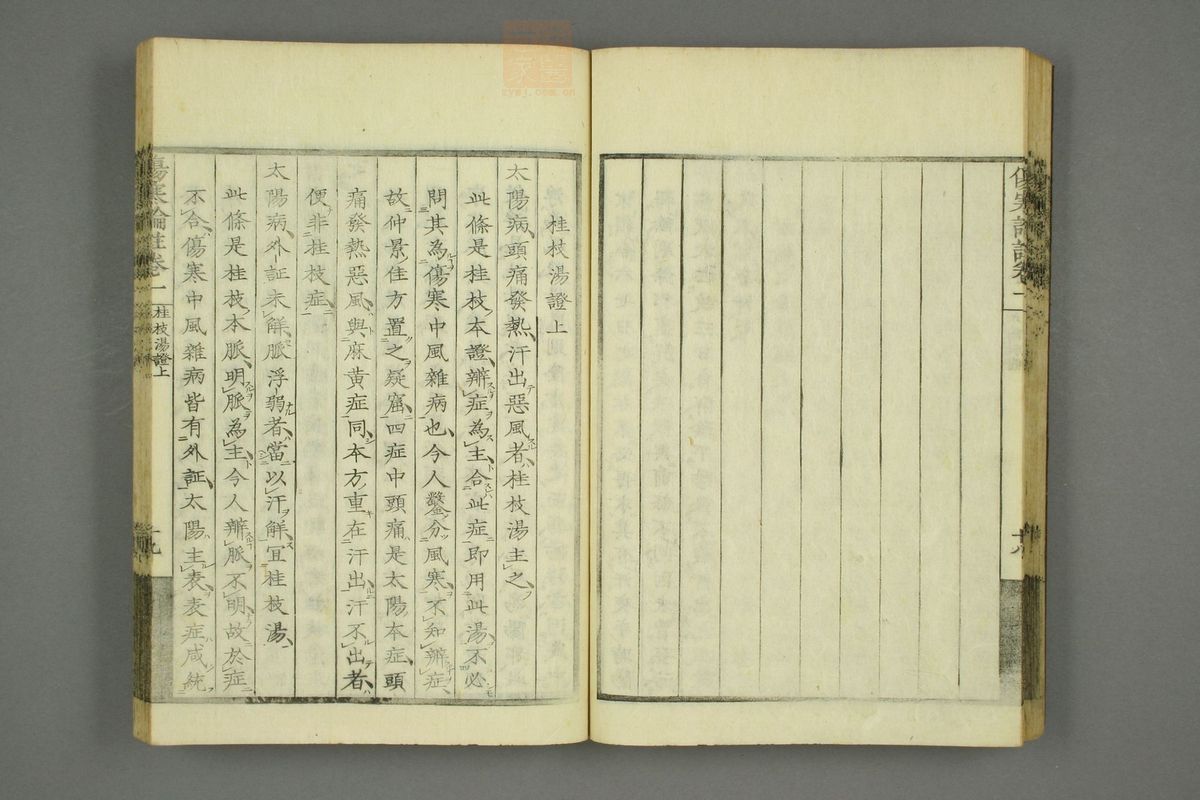 桂枝湯證上
太陽病頭痛發熱汗出惡風者桂枝湯主之
此條是桂枝本證辨症為主合此症即用此湯不必
問其為傷寒中風雜病也今人鑿分風寒不知辨症
故仲景佳方置之疑窟四症中頭痛是太陽本症頭
痛發熱惡風與麻黄症同本方重在汗出汗不出者
便非桂枝症
太陽病外証未解脈浮弱者當以汗解宜桂枝湯
此條是桂枝本脈明脈為主今人辨脈不明故於症
不合傷寒中風雜病皆有外証太陽主表表症咸統
傷寒論註卷一
桂枝湯證上
十九
十八
zywj.com.cn